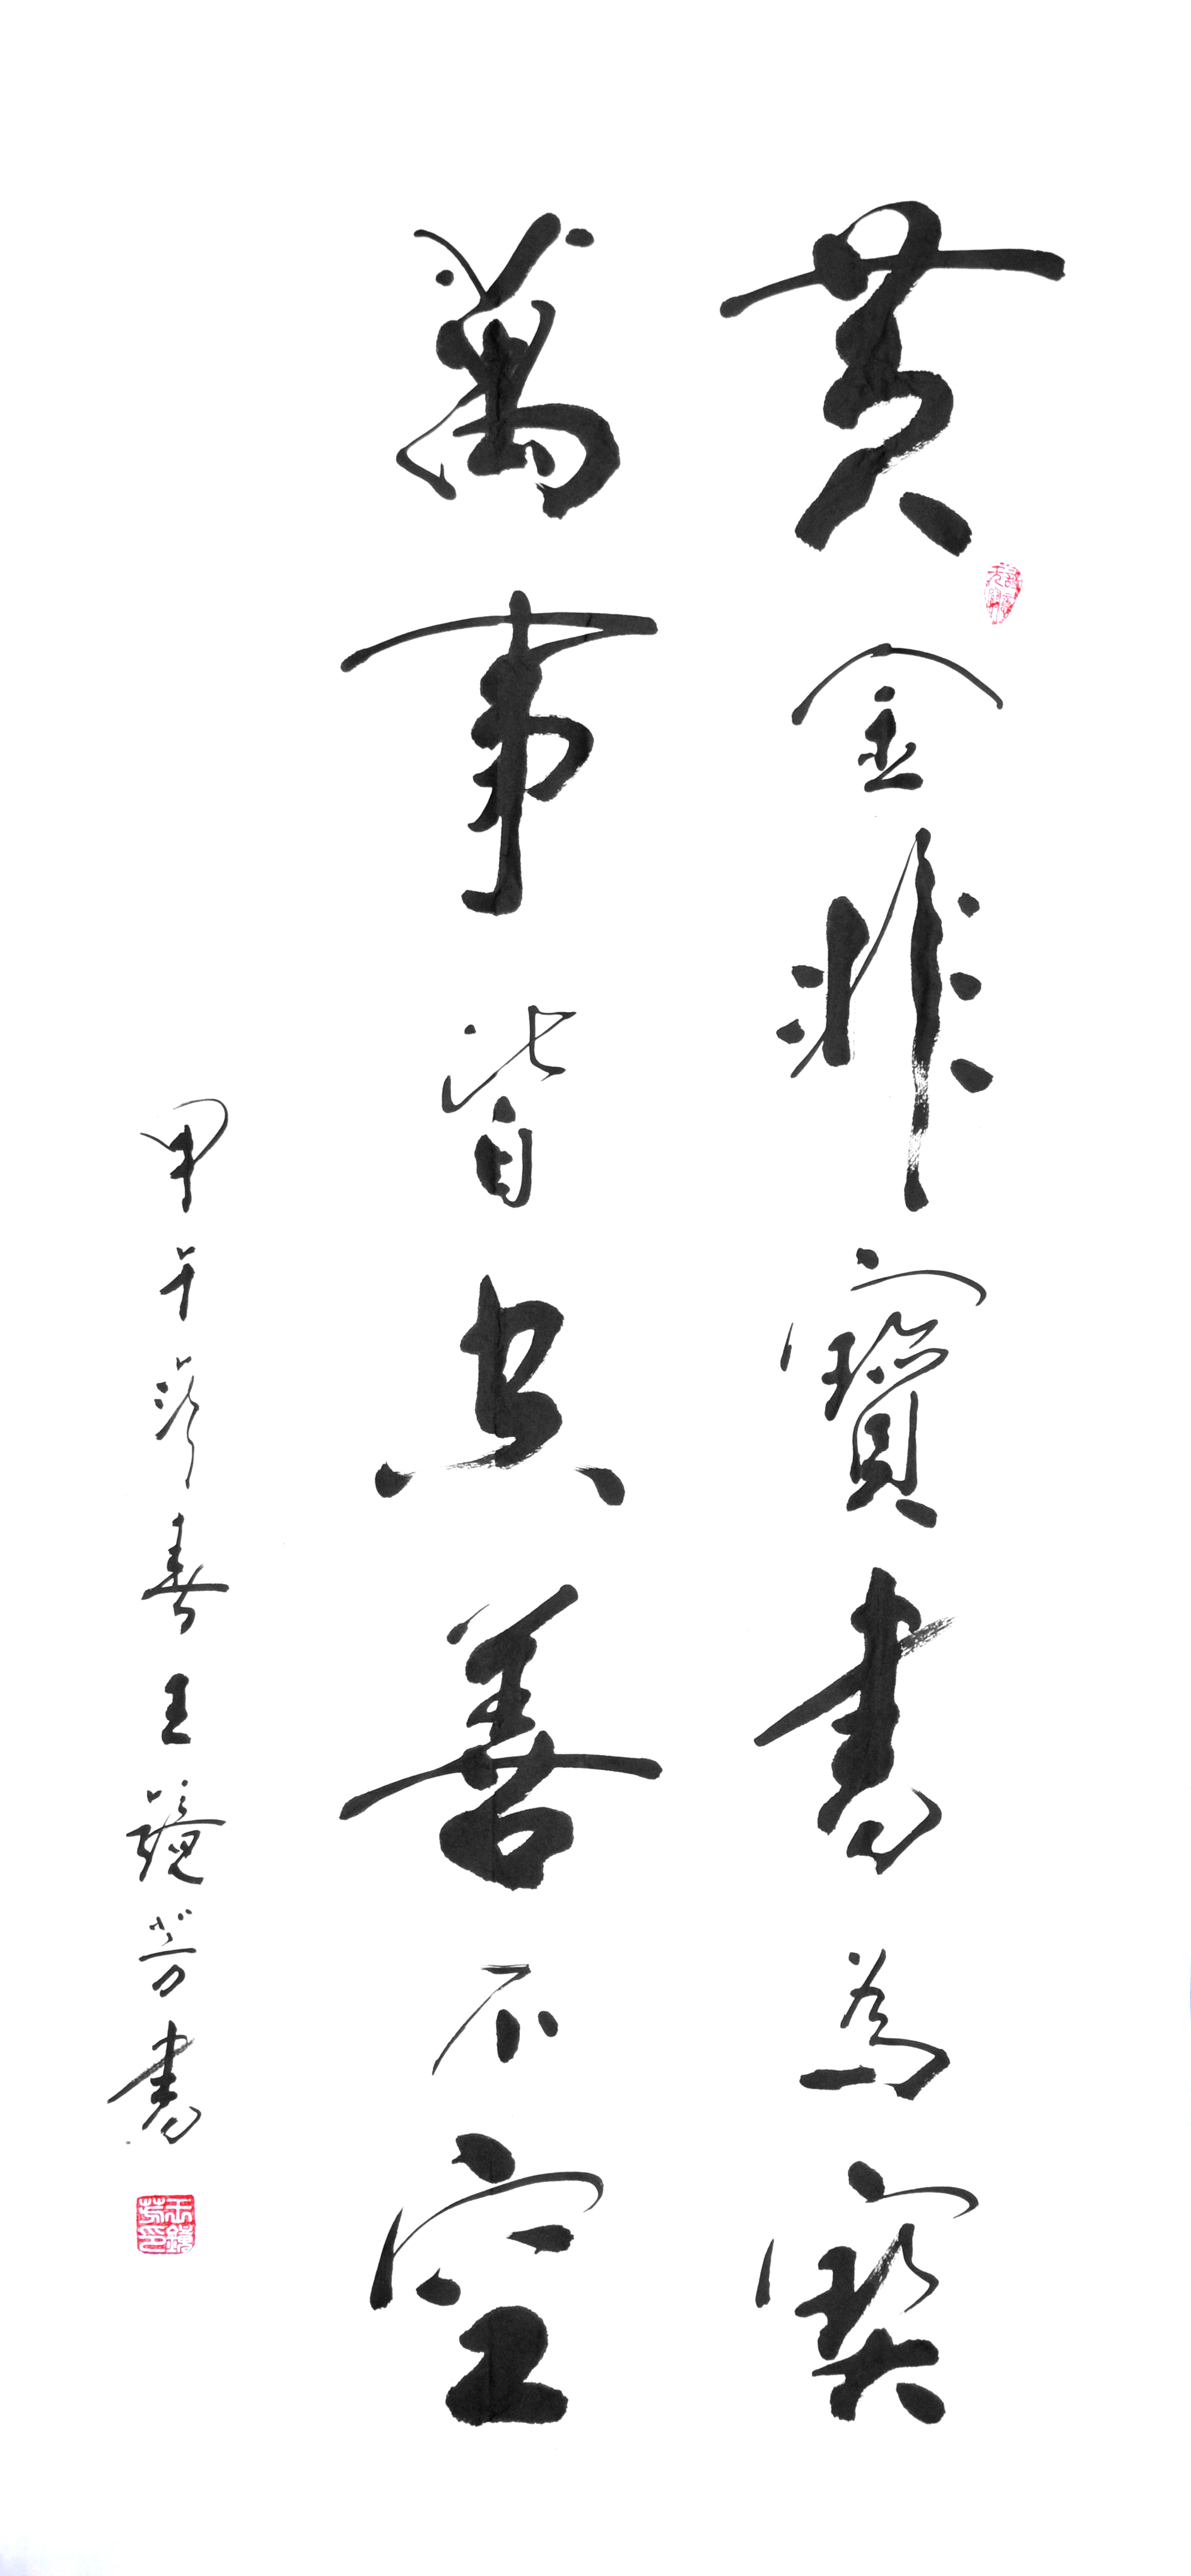 黄金非寶書為寶
萬事皆空善不空
甲午春王鏡芳書
王鏡芳印